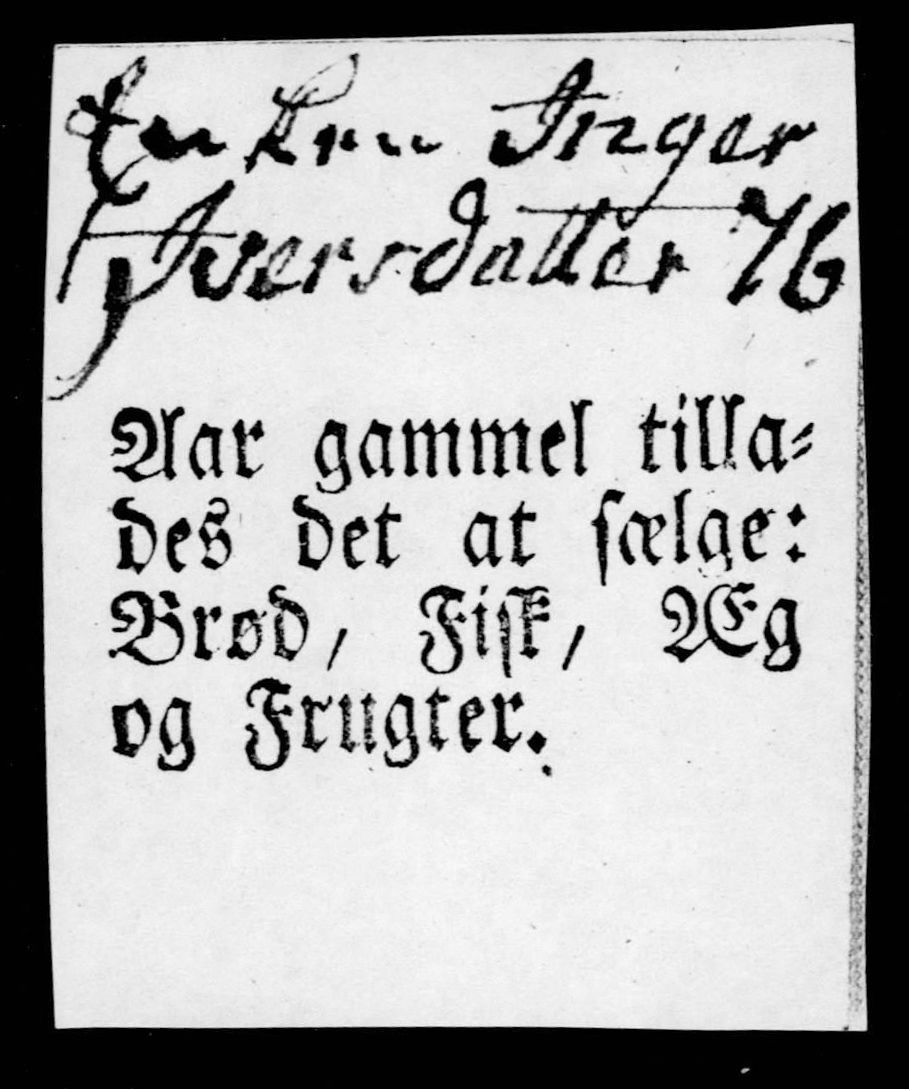 Enken Inger
Iversdatter 76
Aar gammel tilla⸗
des det at ſælge:
Brød, Fiſk, Æg
og Frugter.